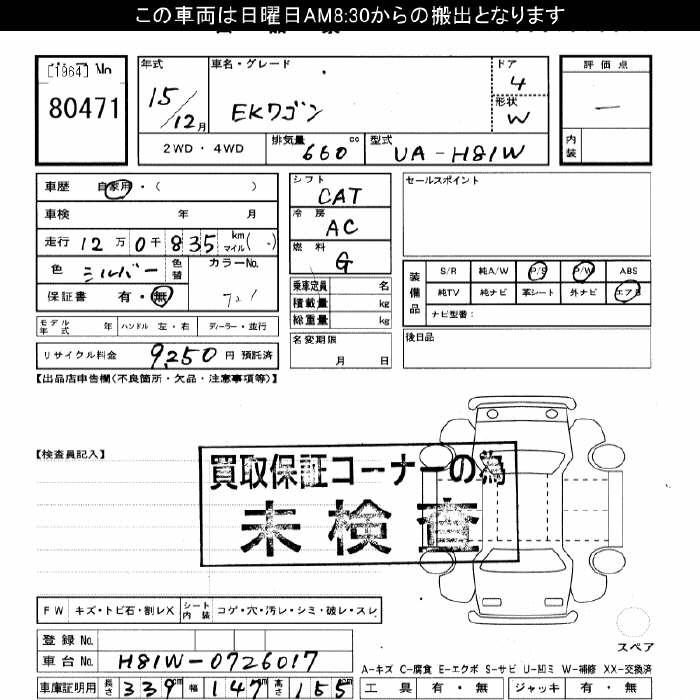 この車両は日曜日AM8:30からの搬出となります
[1964] No
80471
年式
15/12月
車名・グレード
EKワゴン
ドア
4
形状
W
評価点
—
内装
2WD・4WD
排気量 660 cc
型式 UA-H81W
車歴 自家用・( )
車検 年 月
走行 12万0千835 km マイル( )
色 シルバー 色替
カラーNo.
保証書 有・無
モデル年式 年 ハンドル 左・右 ディーラー・並行
リサイクル料金 9,250 円 預託済
シフト CAT
冷房 AC
燃料 G
乗車定員 名
積載量 kg
総重量 kg
名変期限
月 日
セールスポイント
装備品
S/R 純A/W P/S P/W ABS
純TV 純ナビ 革シート 外ナビ エアB
ナビ型番:
後日品
【出品店申告欄(不良箇所・欠品・注意事項等)】
【検査員記入】
買取保証コーナーの為
未検査
FW キズ・トビ石・割レX シート内装 コゲ・穴・汚レ・シミ・破レ・スレ
登録No.
車台No. H81W-0726017
車庫証明用 長さ 339 cm 幅 147 cm 高さ 155 cm
スペア
A-キズ C-腐食 E-エクボ S-サビ U-凹ミ W-補修 XX-交換済
工具 有・無 ジャッキ 有・無